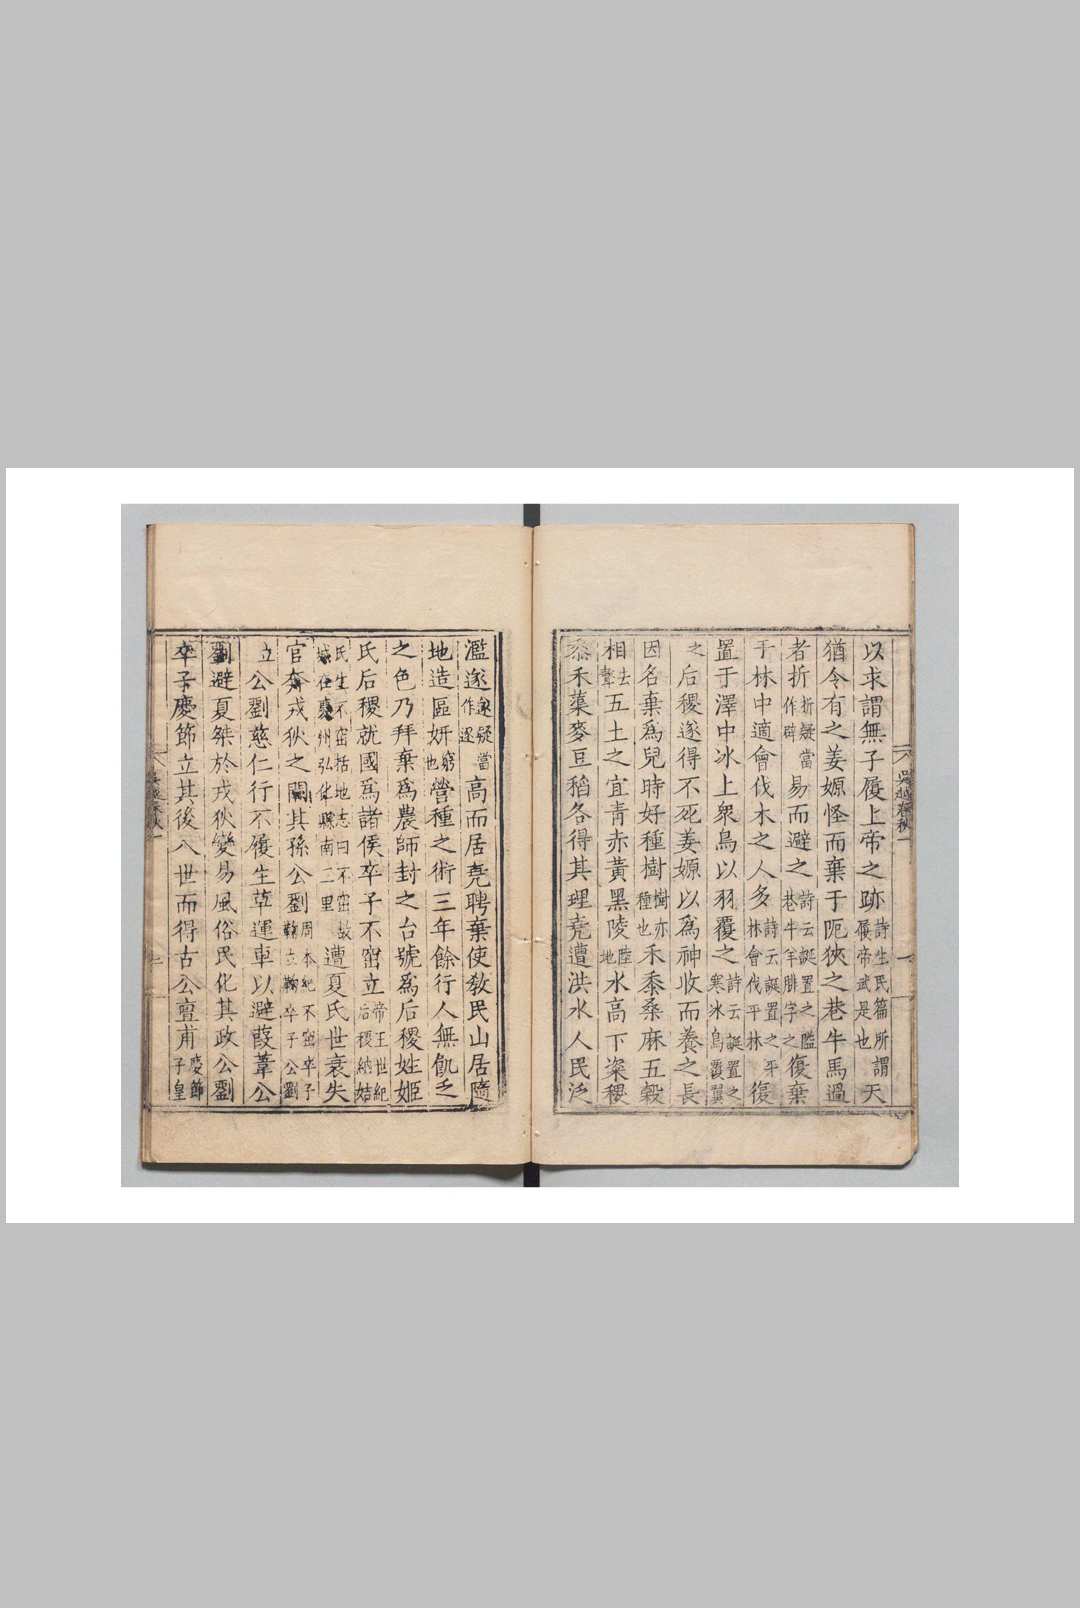 以求謂無子履上帝之跡詩生民篇所謂履帝武是也天
猶令有之姜嫄怪而棄于阨狹之巷牛馬過
者折折疑當作辟易而避之詩云誕置之隘巷牛羊腓字之復棄
于林中適會伐木之人多詩云誕置之平林會伐平林復
置于澤中冰上衆鳥以羽覆之詩云誕置之寒冰鳥覆翼
之后稷遂得不死姜嫄以爲神收而養之長
因名棄爲兒時好種樹樹亦種也禾黍桑麻五穀
相去聲五土之宜青赤黃黑陵陸地水高下粢稷
黍禾蕖麥豆稻各得其理堯遭洪水人民泛
濫遂遂疑當作逐高而居堯聘棄使敎民山居隨
地造區妍窮也營種之術三年餘行人無飢乏
之色乃拜棄爲農師封之台號爲后稷姓姬
氏后稷就國爲諸侯卒子不窋立帝王世紀后稷納姞
氏生不窋括地志曰不窋故城在慶州弘化縣南三里遭夏氏世衰失
官奔戎狄之間其孫公劉周本紀不窋卒子鞠立鞠卒子公劉
立公劉慈仁行不履生草運車以避葭葦公
劉避夏桀於戎狄變易風俗民化其政公劉
卒子慶節立其後八世而得古公亶甫慶節子皇
吳越春秋一